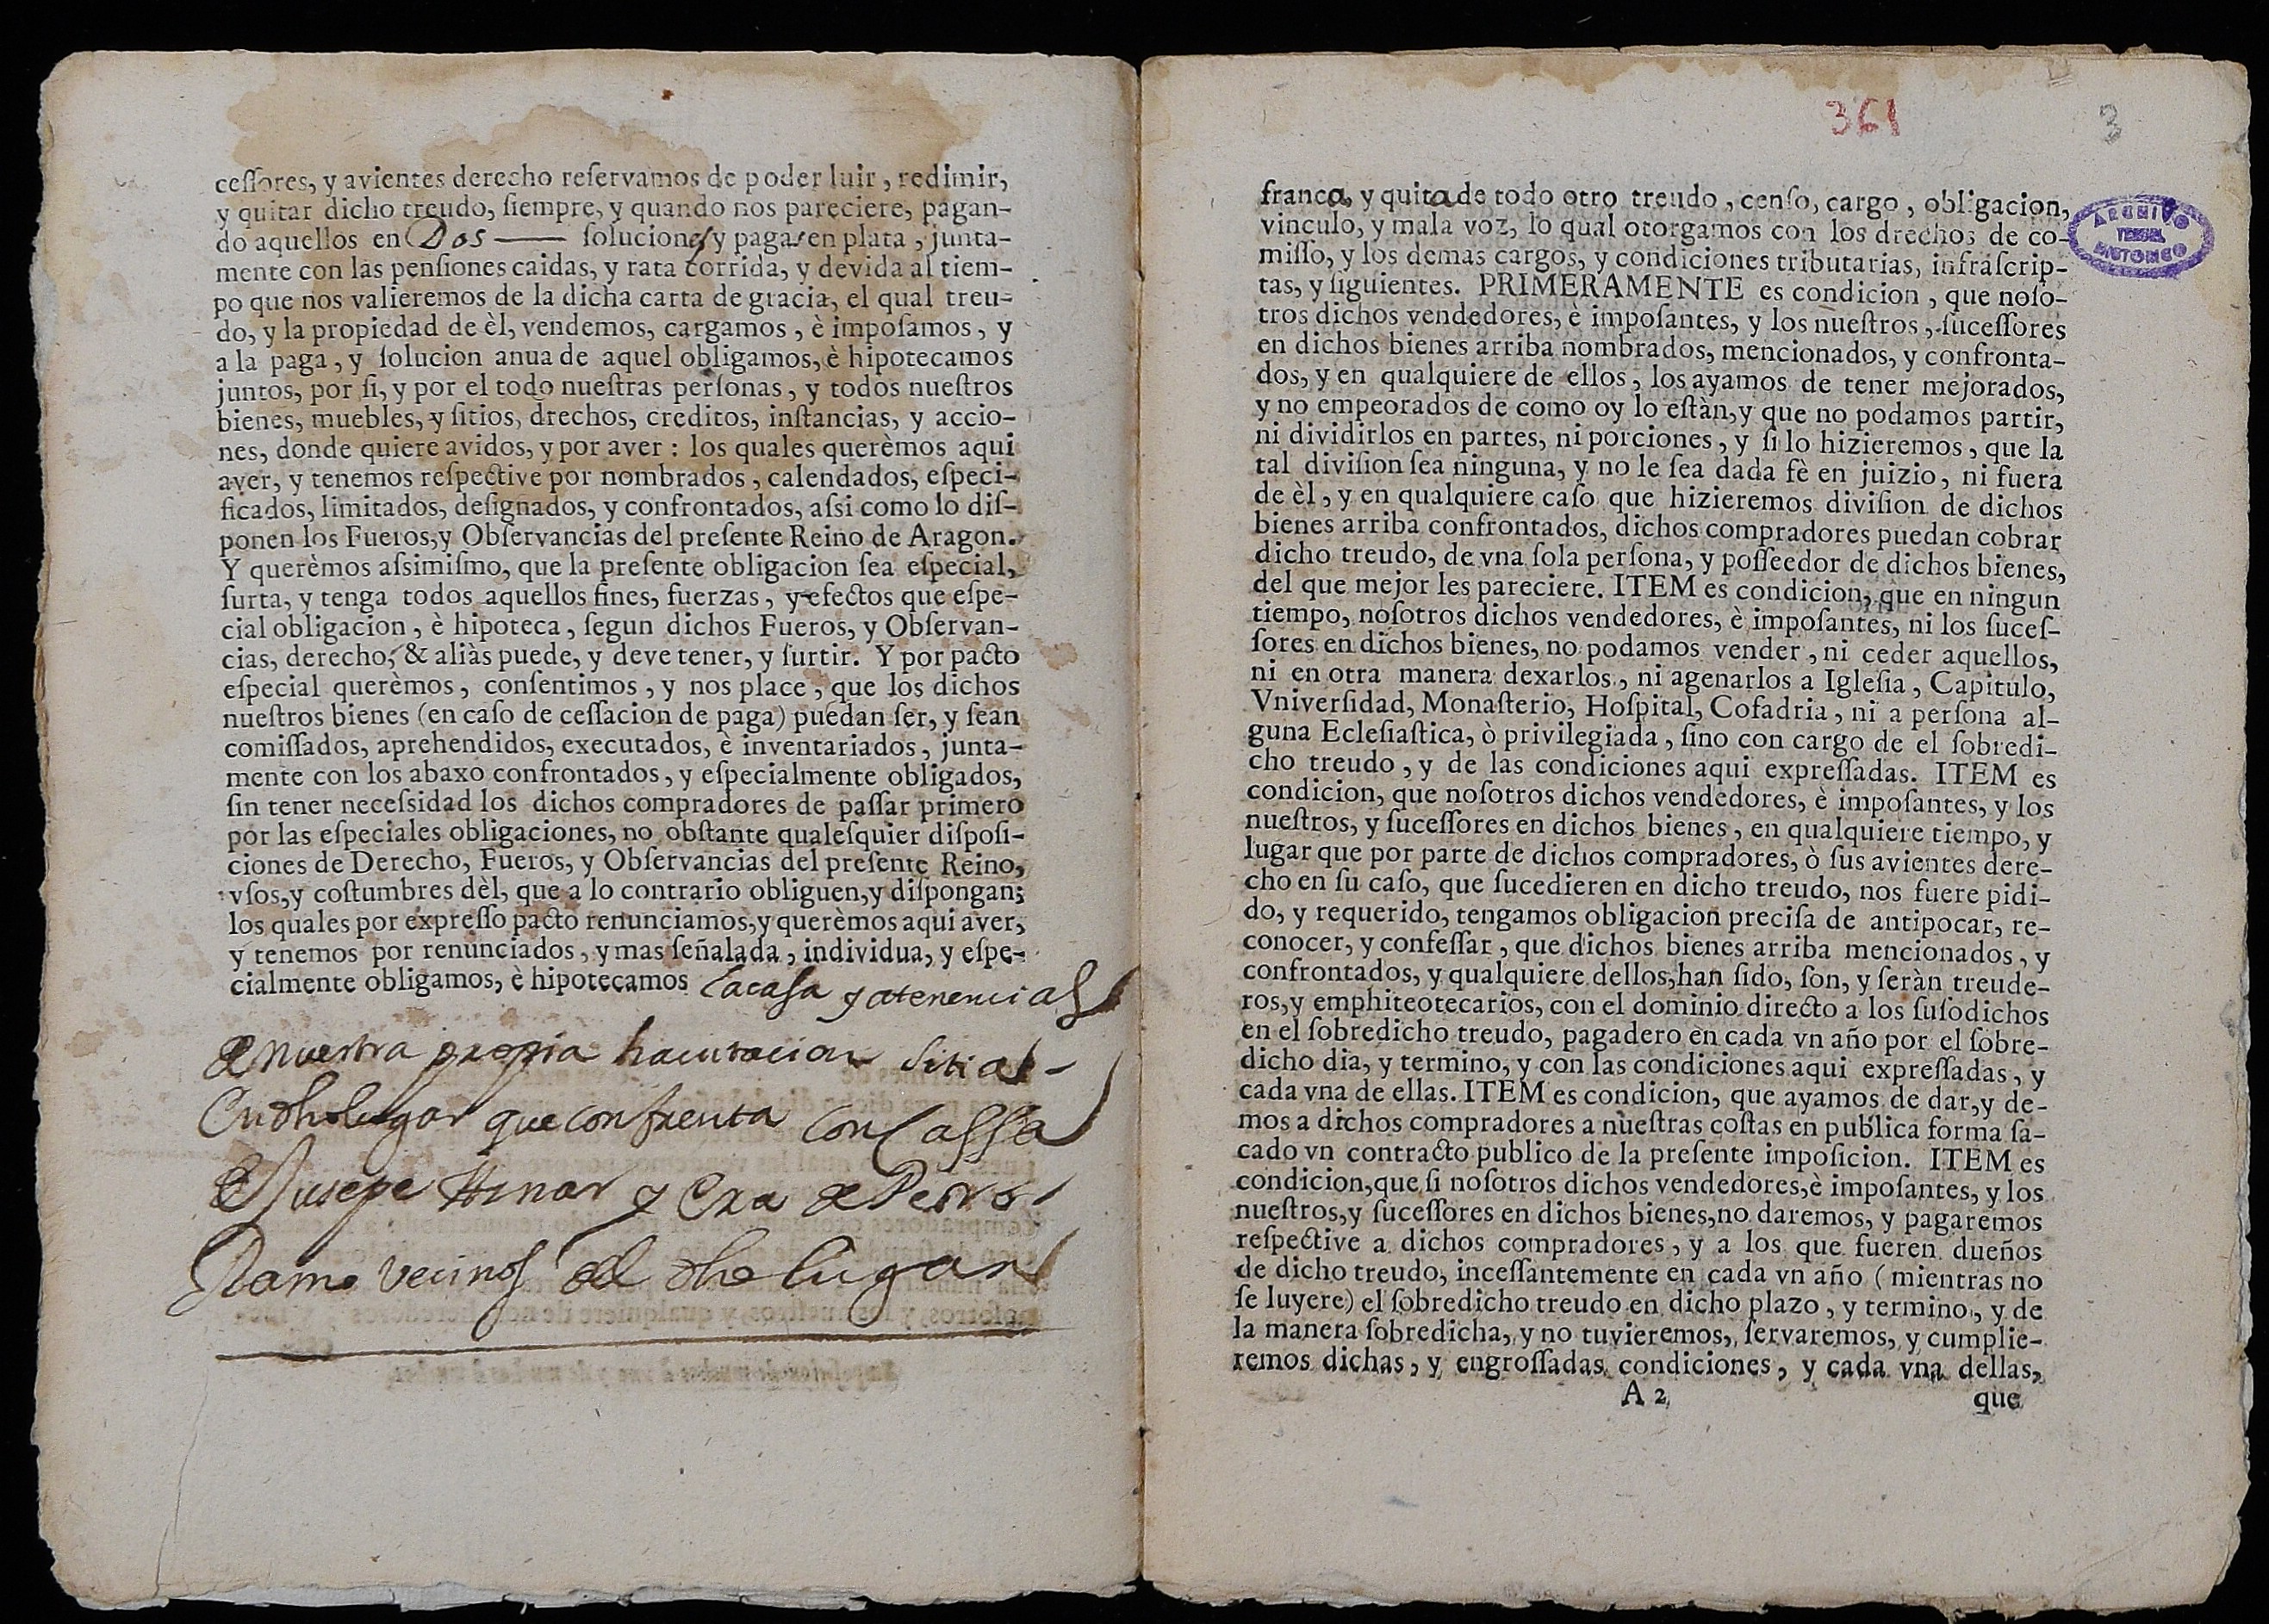 ceſſores, y avientes derecho reſervamos de poder luir, redimir,
y quitar dicho treudo, ſiempre, y quando nos pareciere, pagan-
do aquellos en Dos —— ſoluciones y pagas en plata, junta-
mente con las penſiones caidas, y rata corrida, y devida al tiem-
po que nos valieremos de la dicha carta de gracia, el qual treu-
do, y la propiedad de èl, vendemos, cargamos, è impoſamos, y
a la paga, y ſolucion anua de aquel obligamos, è hipotecamos
juntos, por ſi, y por el todo nueſtras perſonas, y todos nueſtros
bienes, muebles, y ſitios, drechos, creditos, inſtancias, y accio-
nes, donde quiere avidos, y por aver: los quales querèmos aqui
aver, y tenemos reſpective por nombrados, calendados, eſpeci-
ficados, limitados, deſignados, y confrontados, aſsi como lo diſ-
ponen los Fueros, y Obſervancias del preſente Reino de Aragon.
Y querèmos aſsimiſmo, que la preſente obligacion ſea eſpecial,
ſurta, y tenga todos aquellos fines, fuerzas, y efectos que eſpe-
cial obligacion, è hipoteca, ſegun dichos Fueros, y Obſervan-
cias, derecho, & aliàs puede, y deve tener, y ſurtir. Y por pacto
eſpecial querèmos, conſentimos, y nos place, que los dichos
nueſtros bienes (en caſo de ceſſacion de paga) puedan ſer, y ſean
comiſſados, aprehendidos, executados, è inventariados, junta-
mente con los abaxo confrontados, y eſpecialmente obligados,
ſin tener neceſsidad los dichos compradores de paſſar primero
por las eſpeciales obligaciones, no obſtante qualeſquier diſpoſi-
ciones de Derecho, Fueros, y Obſervancias del preſente Reino,
vſos, y coſtumbres dèl, que a lo contrario obliguen, y diſpongan;
los quales por expreſſo pacto renunciamos, y querèmos aqui aver,
y tenemos por renunciados, y mas ſeñalada, individua, y eſpe-
cialmente obligamos, è hipotecamos la casa y atenencias
de nuestra propia hauitacion sitias
en dho lugar que confrenta con Cassa
de Jusepe y Era de Pedro
Ramo vecinos del dho lugar
361
3
ARCHIVO
TERUEL
HISTORICO
franca, y quita de todo otro treudo, cenſo, cargo, obligacion,
vinculo, y mala voz, lo qual otorgamos con los drechos de co-
miſſo, y los demas cargos, y condiciones tributarias, infraſcrip-
tas, y ſiguientes. PRIMERAMENTE es condicion, que noſo-
tros dichos vendedores, è impoſantes, y los nueſtros, ſuceſſores
en dichos bienes arriba nombrados, mencionados, y confronta-
dos, y en qualquiere de ellos, los ayamos de tener mejorados,
y no empeorados de como oy lo eſtàn, y que no podamos partir,
ni dividirlos en partes, ni porciones, y ſi lo hizieremos, que la
tal diviſion ſea ninguna, y no le ſea dada fè en juizio, ni fuera
de èl, y en qualquiere caſo que hizieremos diviſion de dichos
bienes arriba confrontados, dichos compradores puedan cobrar
dicho treudo, de vna ſola perſona, y poſſeedor de dichos bienes,
del que mejor les pareciere. ITEM es condicion, que en ningun
tiempo, noſotros dichos vendedores, è impoſantes, ni los ſuceſ-
ſores en dichos bienes, no podamos vender, ni ceder aquellos,
ni en otra manera dexarlos, ni agenarlos a Igleſia, Capitulo,
Vniverſidad, Monaſterio, Hoſpital, Cofadria, ni a perſona al-
guna Ecleſiaſtica, ò privilegiada, ſino con cargo de el ſobredi-
cho treudo, y de las condiciones aqui expreſſadas. ITEM es
condicion, que noſotros dichos vendedores, è impoſantes, y los
nueſtros, y ſuceſſores en dichos bienes, en qualquiere tiempo, y
lugar que por parte de dichos compradores, ò ſus avientes dere-
cho en ſu caſo, que ſucedieren en dicho treudo, nos fuere pidi-
do, y requerido, tengamos obligacion preciſa de antipocar, re-
conocer, y confeſſar, que dichos bienes arriba mencionados, y
confrontados, y qualquiere dellos, han ſido, ſon, y ſeràn treude-
ros, y emphiteotecarios, con el dominio directo a los ſuſodichos
en el ſobredicho treudo, pagadero en cada vn año por el ſobre-
dicho dia, y termino, y con las condiciones aqui expreſſadas, y
cada vna de ellas. ITEM es condicion, que ayamos de dar, y de-
mos a dichos compradores a nueſtras coſtas en publica forma ſa-
cado vn contracto publico de la preſente impoſicion. ITEM es
condicion, que ſi noſotros dichos vendedores, è impoſantes, y los
nueſtros, y ſuceſſores en dichos bienes, no daremos, y pagaremos
reſpective a dichos compradores, y a los que fueren dueños
de dicho treudo, inceſſantemente en cada vn año (mientras no
ſe luyere) el ſobredicho treudo en dicho plazo, y termino, y de
la manera ſobredicha, y no tuvieremos, ſervaremos, y cumplie-
remos dichas, y engroſſadas condiciones, y cada vna dellas,
A 2
que